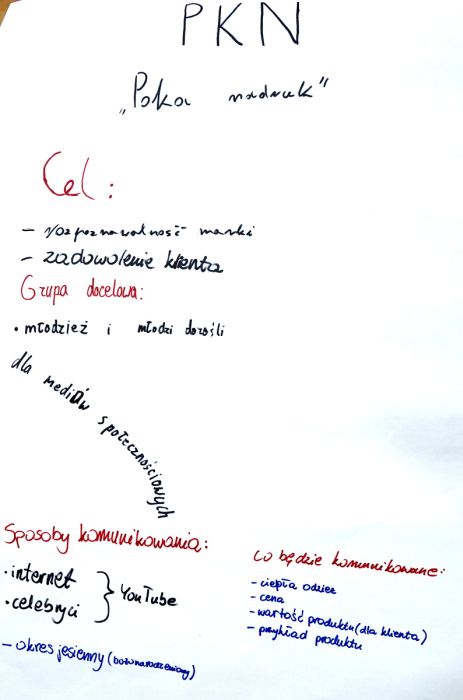 PKN
„Poka nadruk"
Cel:
- rozpoznawalność marki
- zadowolenie klienta
Grupa docelowa:
• młodzież i młodzi dorośli
dla mediów społecznościowych
Sposoby komunikowania:
• internet
• celebryci } YouTube
- okres jesienny (bożonarodzeniowy)
Co będzie komunikowane:
- ciepła odzież
- cena
- wartość produktu (dla klienta)
- przykład produktu